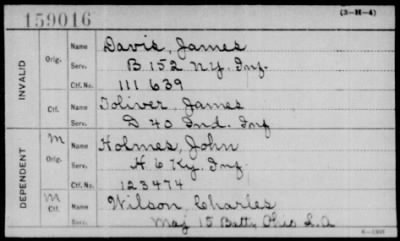 159016
(3-H-4)
INVALID
Orig.
Name Davis, James
Serv. B. 152 N.Y. Inf.
Ctf. No. 111639
Ctf.
Name Toliver, James
Serv. D 40 Ind. Inf
DEPENDENT
M
Orig.
Name Holmes, John
Serv. H. 6 Ky. Inf.
Ctf. No. 123474
M
Ctf.
Name Wilson, Charles
Serv. Maj 15 Batty Ohio L.A